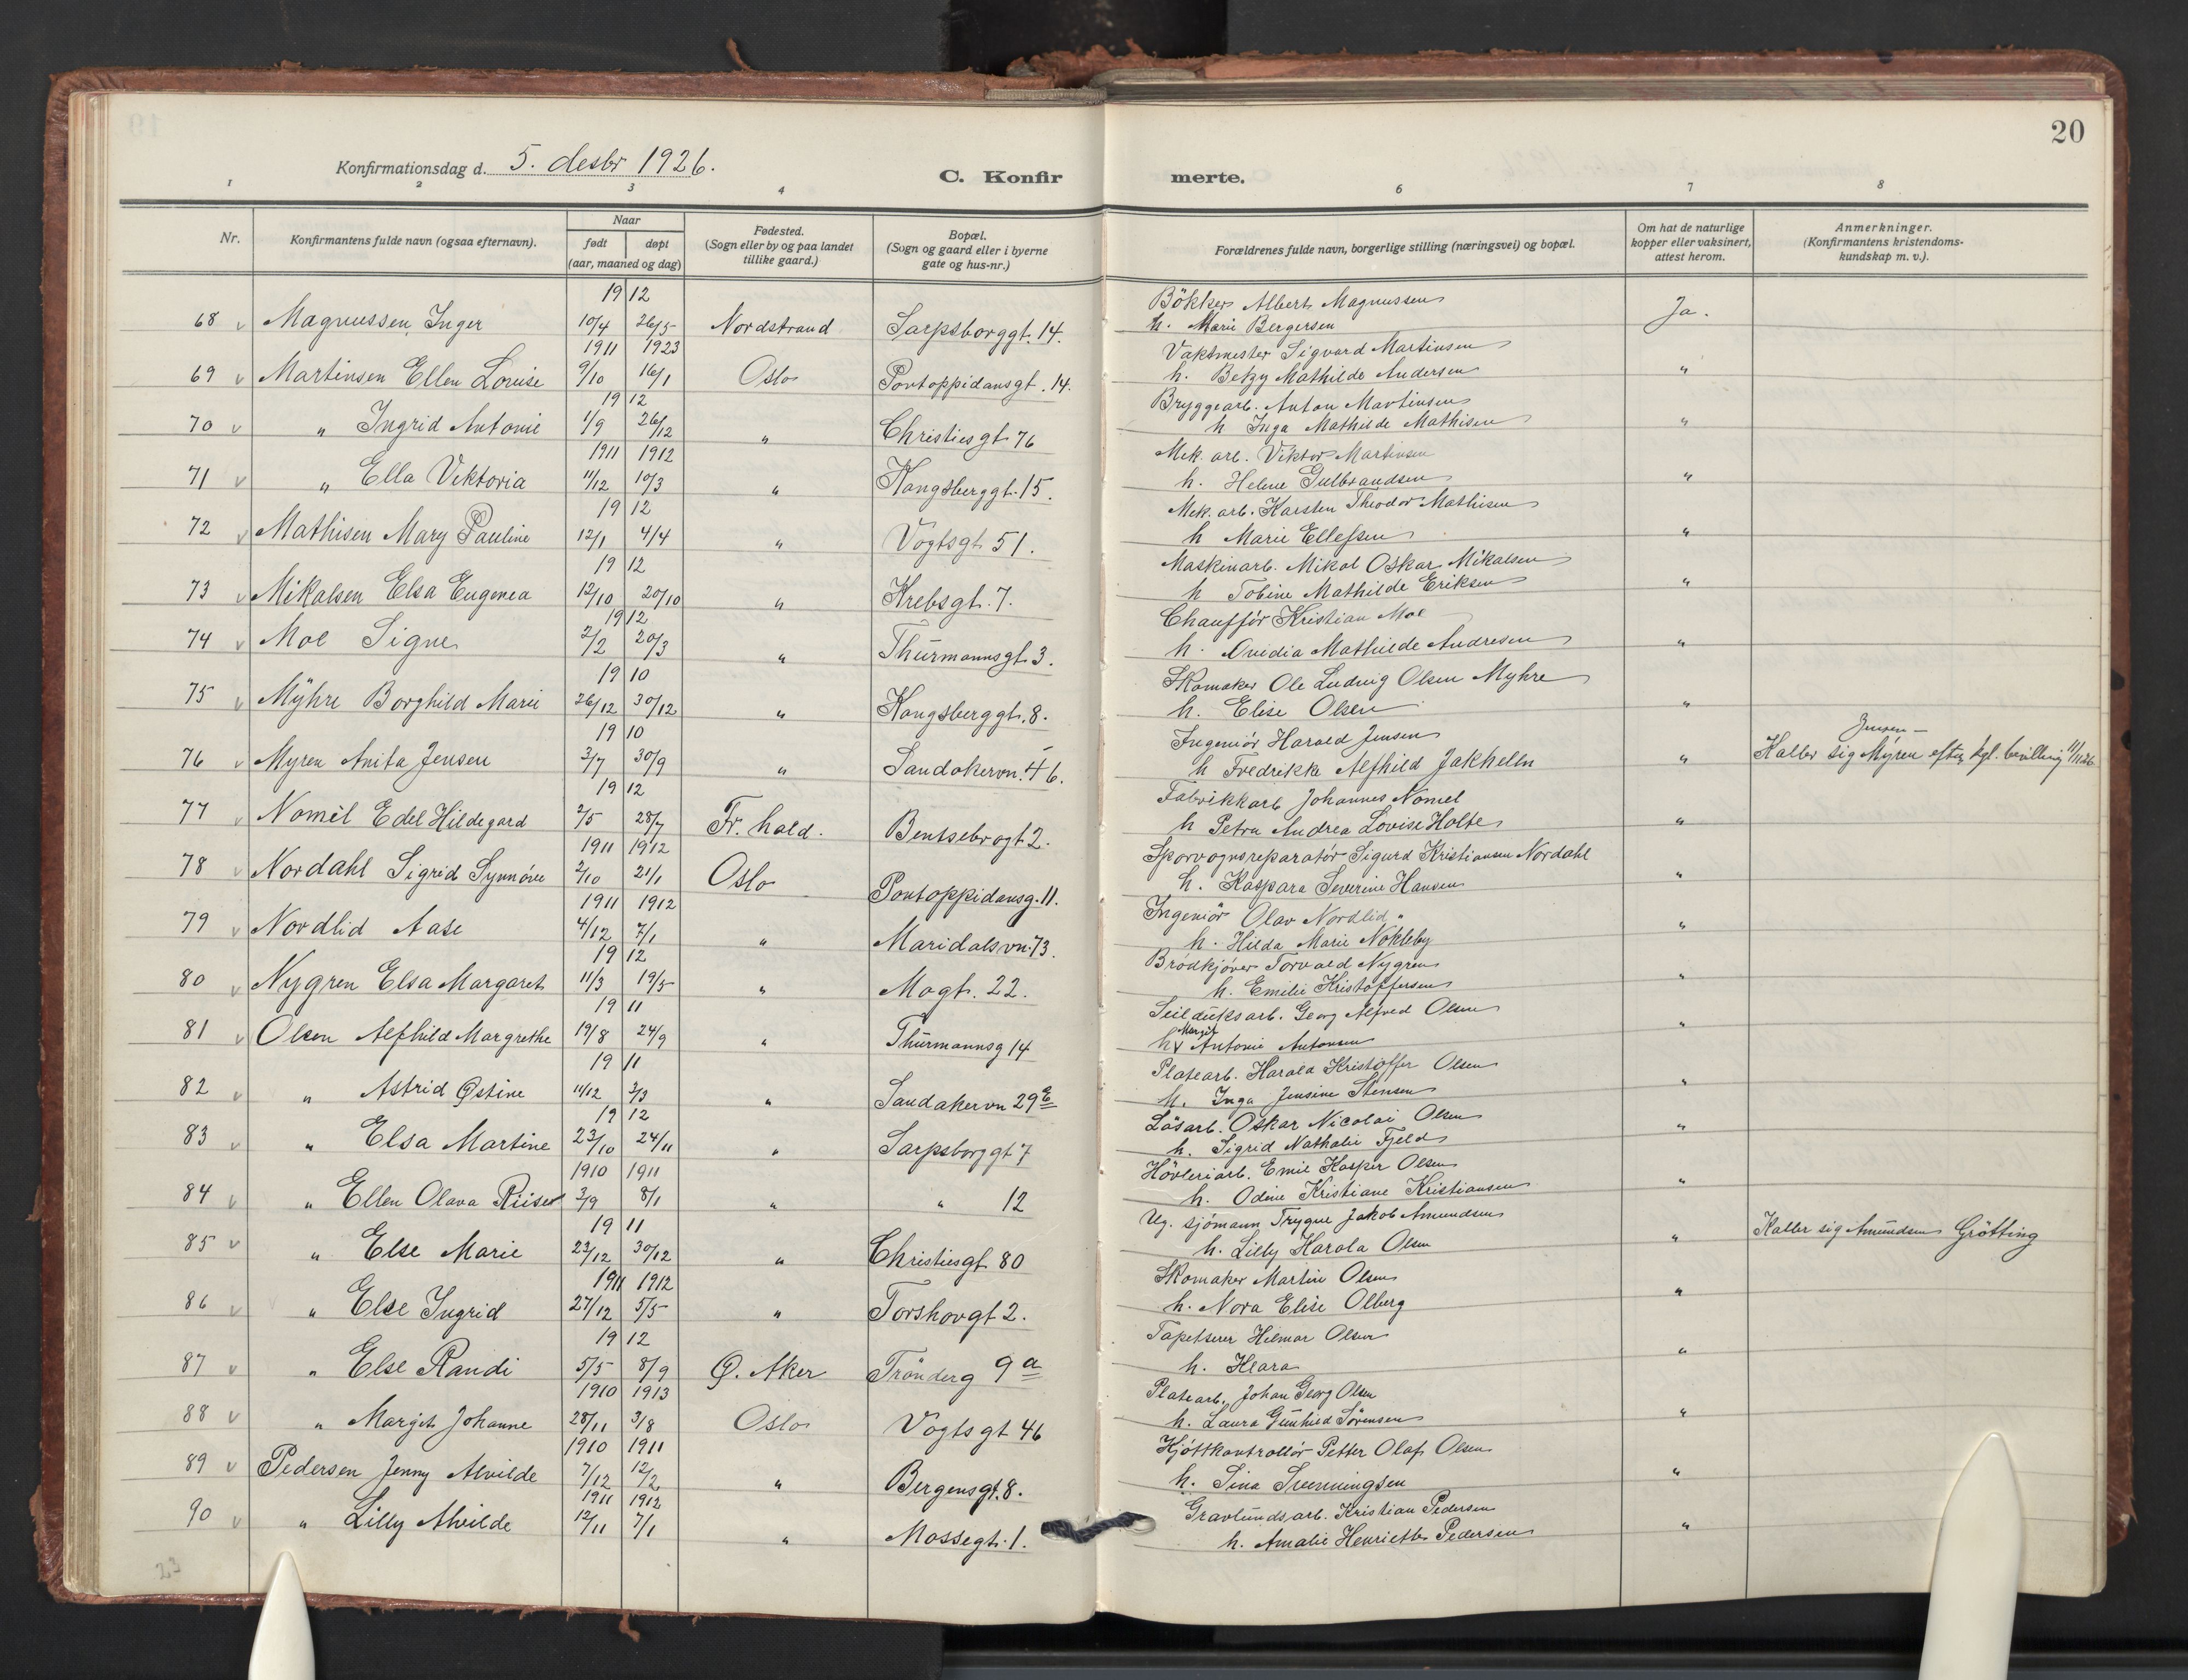 20
Konfirmationsdag d. 5. desbr 1926.
C. Konfirmerte.
1 2 3 4 6 7 8
Nr.
Konfirmantens fulde navn (ogsaa efternavn).
Naar
født
døpt
(aar, maaned og dag)
Fødested.
(Sogn eller by og paa landet
tillike gaard.)
Bopæl.
(Sogn og gaard eller i byerne
gate og hus-nr.)
Forældrenes fulde navn, borgerlige stilling (næringsvei) og bopæl.
Om hat de naturlige
kopper eller vaksinert,
attest herom.
Anmerkninger.
(Konfirmantens kristendoms-
kundskap m. v.).
19 12 Bökker Albert Magnussen
68 v Magnussen, Inger 10/4 26/5 Nordstrand Sarpsborggt. 14. h. Marie Bergersen Ja.
1911 1923 Vaktmester Sigvard Martinsen
69 v Martinsen Ellen Lovise 9/10 16/1 Oslo Pontoppidansgt. 14. h. Betzy Mathilde Andersen "
19 12 Bryggearb. Anton Martinsen
70 v " Ingrid Antonie 1/9 26/12 " Christiesgt 76 h Inga Mathilde Mathisen "
1911 1912 Mek. arb. Viktor Martinsen
71 v " Ella Viktoria 11/12 10/3 " Kongsberggt. 15. h. Helene Gulbrandsen "
19 12 Mek. arb. Karsten Theodor Mathisen
72 v Mathisen Mary Pauline 12/1 4/4 " Vogtsgt 51. h Marie Ellefsen "
19 12 Maskinarb. Mikal Oskar Mikalsen
73 v Mikalsen Elsa Eugenia 12/10 20/10 " Krebsgt. 7. h Tobine Mathilde Eriksen "
19 12 Chauffør Kristian Moe
74 v Moe Signe 2/2 20/3 " Thurmannsgt. 3. h. Ovidia Mathilde Andresen "
19 10 Skomaker Ole Ludvig Olsen Myhre
75 v Myhre Borghild Marie 26/12 30/12 " Kongsberggt. 8. h. Elise Olsen "
19 10 Ingeniør Harald Jensen Jensen –
76 v Myren Anita Jensen 3/7 30/9 " Sandakervn. 46. h Fredrikke Alfhild Jakhelln " Kaller sig Myren efter kgl. bevilling 11/11 26
19 12 Fabrikkarb Johannes Nomel
77 v Nomél Edel Hildegard 2/5 28/7 Fr. hald. Bentsebrogt 2. h Petra Andrea Lovise Holte "
1911 1912 Sporvognsreparatør Sigurd Kristiansen Nordahl
78 v Nordahl Sigrid Synnøve 2/10 21/1 Oslo Pontoppidansg. 11. h. Kaspara Severine Hansen "
1911 1912 Ingeniør Olav Nordlid
79 v Nordlid Aase 4/12 7/1 " Maridalsvn. 73. h. Hilda Marie Nökleby "
19 12 Brødkjører Torvald Nygren
80 v Nygren Elsa Margaret 11/3 19/5 " Mogt. 22. h. Emilie Kristoffersen "
19 11 Seilduksarb. Georg Alfred Olsen
81 v Olsen Alfhild Margrethe 19/8 24/9 " Thurmannsg 14 h. Margit Antonie Antonsen "
19 11 Platearb. Harald Kristoffer Olsen
82 v " Astrid Østine 11/12 3/3 " Sandakervn 29 h. Inga Jensine Stensen "
19 12 Løsarb. Oskar Nicolai Olsen
83 v " Elsa Martine 23/10 24/11 " Sarpsborggt 7 h. Sigrid Nathalie Fjeld "
1910 1911 Høvleriarb. Emil Kasper Olsen
84 v " Ellen Olava Riiser 3/9 8/1 " " 12 h. Odine Kristiane Kristiansen "
19 11 Ug. sjømann Trygve Jakob Amundsen
85 v " Else Marie 23/12 30/12 " Christiesgt 80 h. Lilly Harala Olsen " Kaller sig Amundsen Grøtting
1911 1912 Skomaker Martin Olsen
86 v " Else Ingrid 27/12 5/5 " Torshovgt 2. h. Nora Elise Olberg "
19 12 Tapetserer Hilmar Olsen
87 v " Else Randi 5/5 8/9 Ø. Aker Trønderg 9a h. Klara "
1910 1913 Platearb. Johan Georg Olsen
88 v " Margit Johanne 28/11 3/8 Oslo Vogtsgt 46 h. Laura Gunhild Sørensen "
1910 1911 Kjøttkontrollør Petter Olaf Olsen
89 v Pedersen Jenny Alvilde 7/12 12/2 " Bergensgt. 8. h. Sina Svenningsen "
1911 1912 Gravlundsarb. Kristian Pedersen
90 v " Lilly Alvilde 12/11 7/1 " Mossegt. 1. h. Amalie Henriette Pedersen "
23